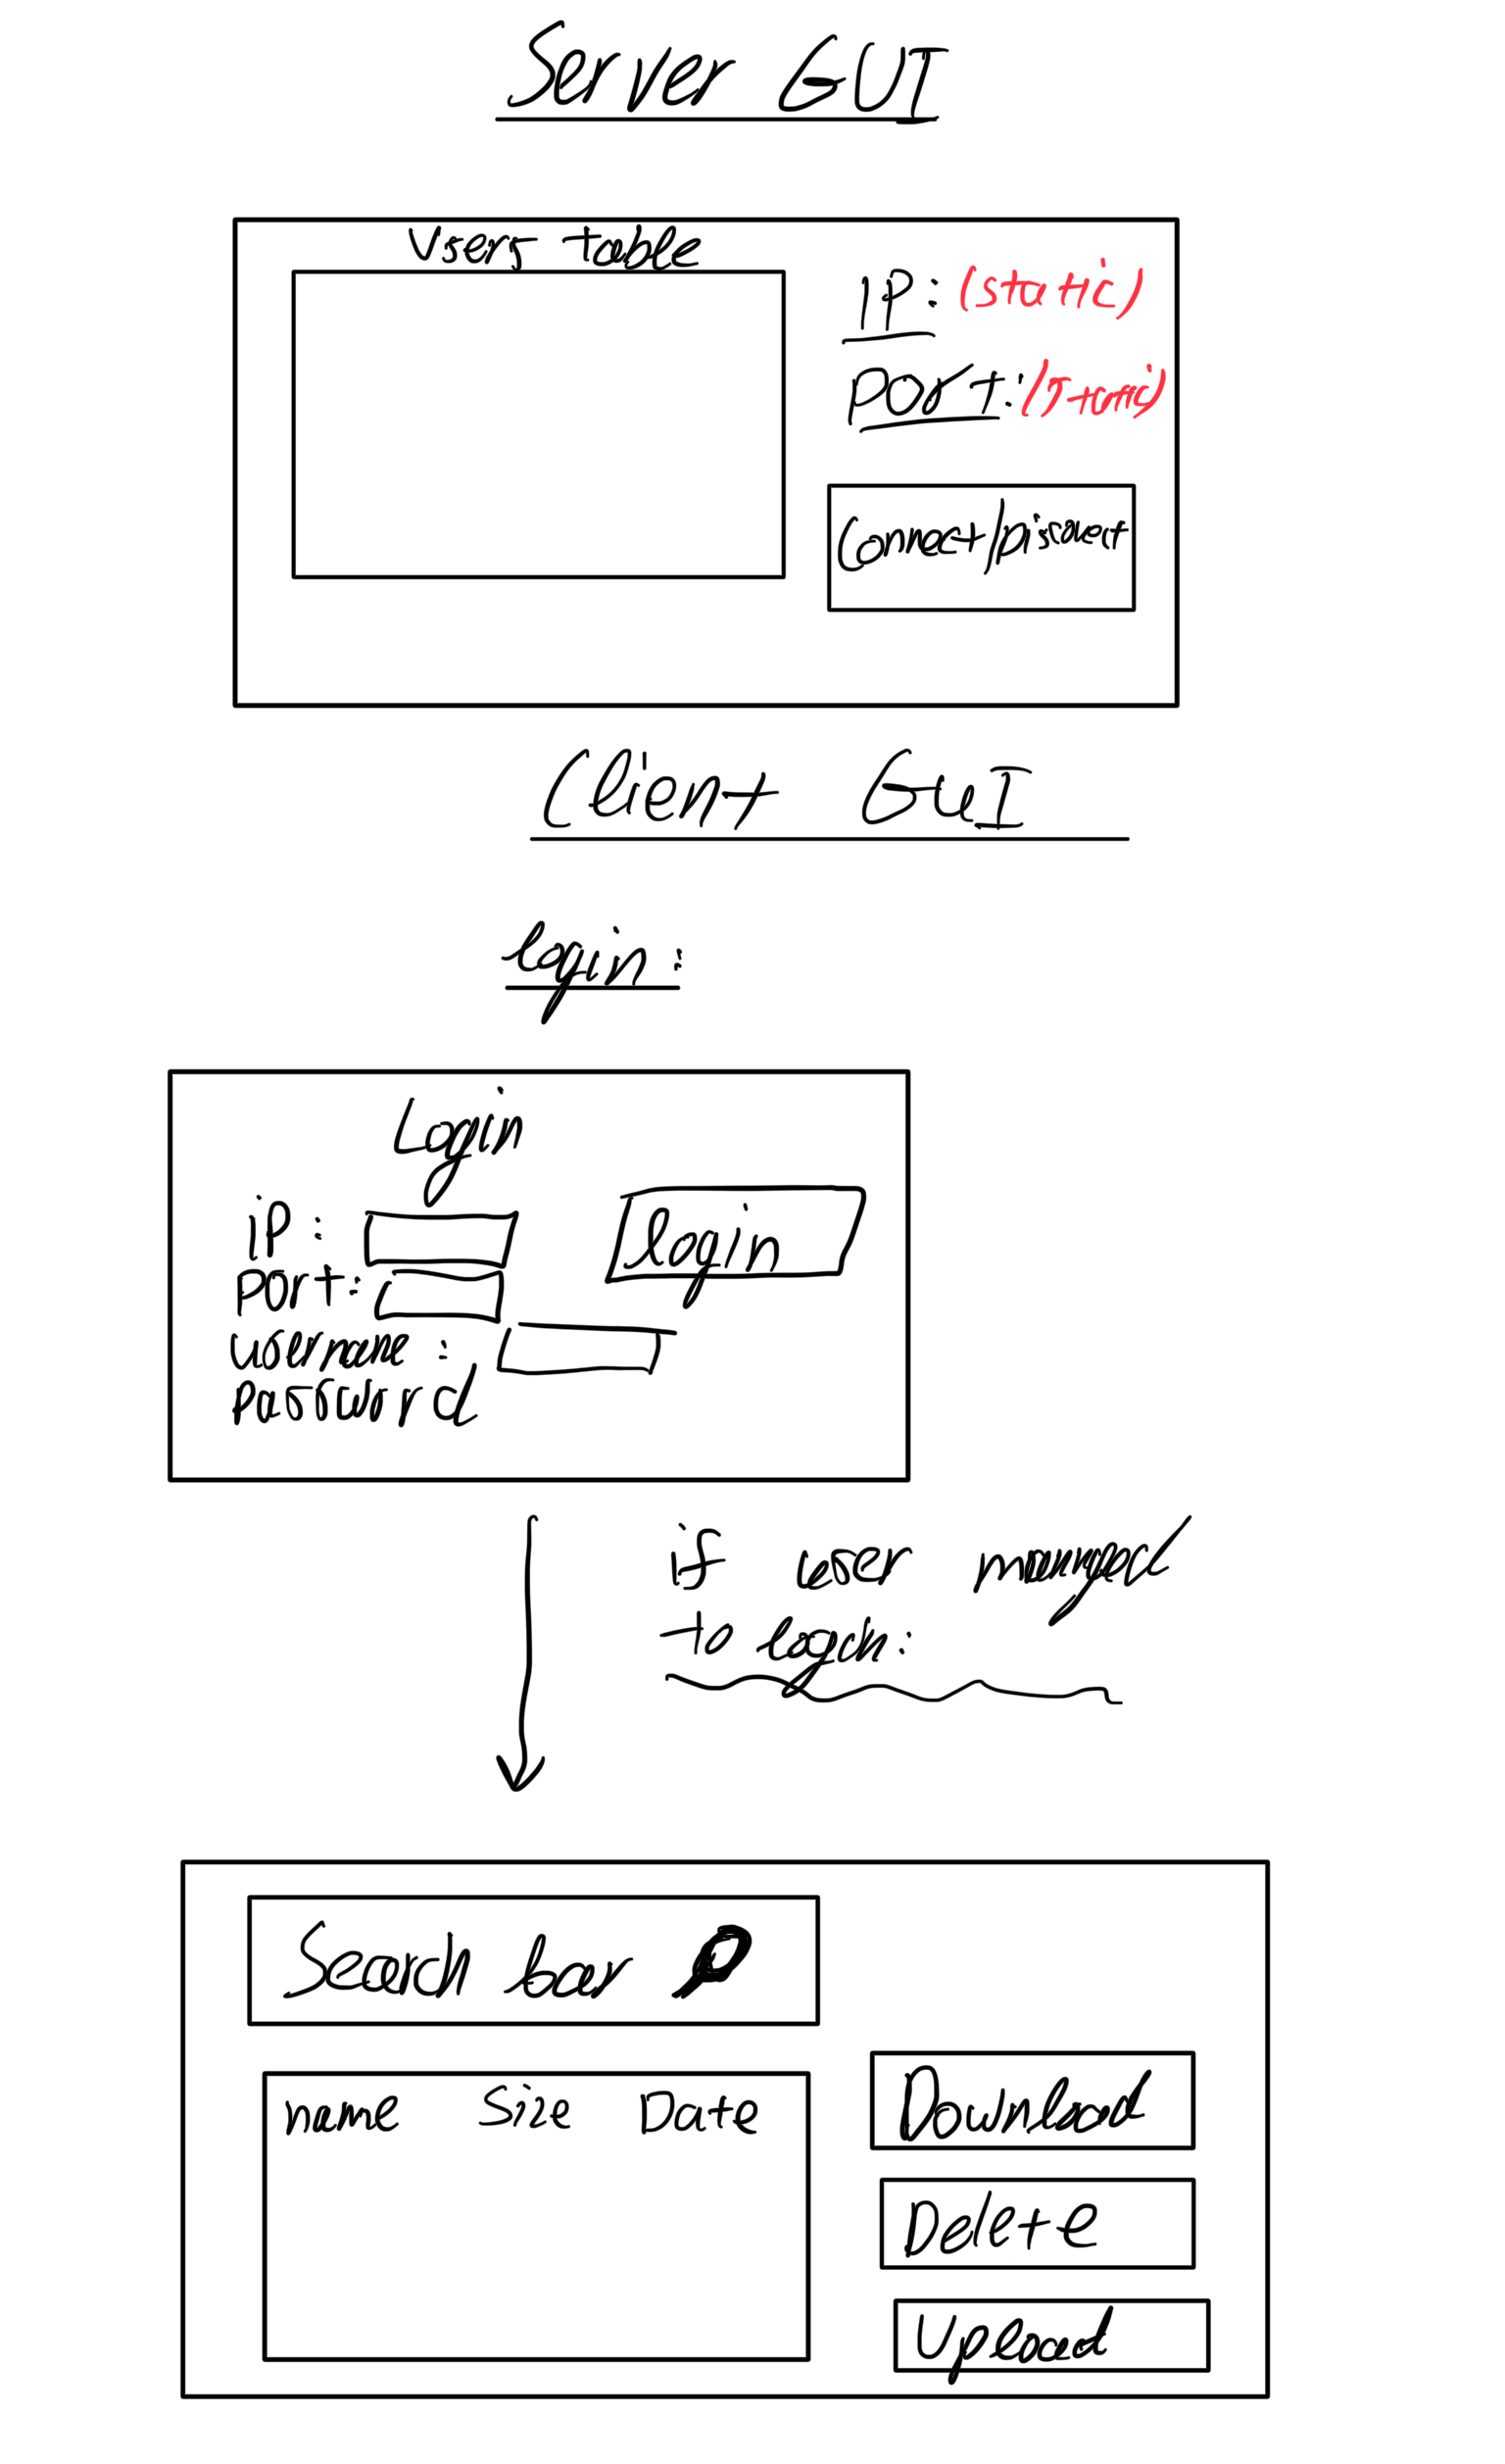 Server GUI
User table
ip: (static)
port: (static)
Connect/Disconnect
Client GUI
login:
Login
ip:
port:
username:
password
login
if user managed
to login:
Search bar
name Size Date
Download
Delete
Upload